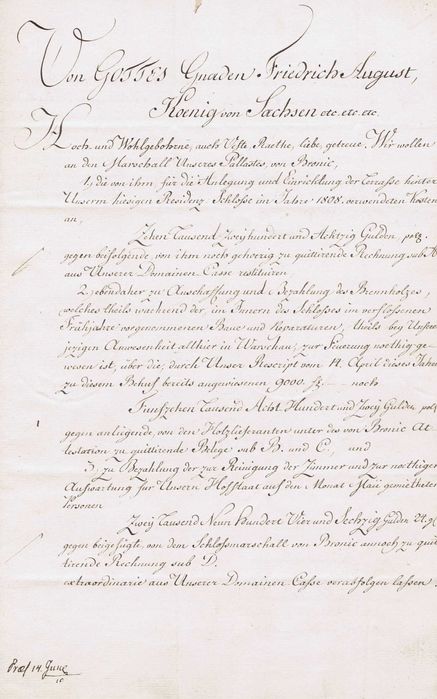 Von GOTTES Gnaden Friedrich August,
Koenig von Sachsen etc. etc. etc.
Hoch- und Wohlgebohrne, auch Veste Raethe, liebe, getreue. Wir wollen
an den Marschall Unseres Pallastes, von Bronic,
1, die von ihm für die Anlegung und Einrichtung der Terasse hinter
Unserm hiesigen Residenz-Schlosse im Jahre 1808. verwendeten Kosten
an,
Zehn Tausend Zweyhundert und Achtzig Gulden, pol.
gegen beifolgende, von ihm noch gehoerig zu quittirende Rechnung sub A
aus Unserer Domainen Casse restituiren
2, ebendaher zu Anschaffung und Bezahlung des Brennholzes,
welches theils waehrend der, im Innern des Schlosses im verflossenen
Frühjahre vorgenommenen Baue und Reparaturen, theils bey Unsrer
jezigen Anwesenheit allhier in Warschau, zur Feuerung noethig ge-
wesen ist, über die, durch Unser Rescript vom 14. April dieses Jahres
zu diesem Behuf bereits angewiesenen 9000. fl. noch
Funfzehen Tausend Acht Hundert und Zwey Gulden, pol
gegen anliegende, von den Holzlieferanten unter des von Bronic At-
testation zu quittirende Belege sub B. und C., und
3, zu Bezahlung der zur Reinigung der Zimmer und zur noethigen
Aufwartung für Unsern Hofstaat auf den Monat Maii gemietheten
Personen
Zwey Tausend Neun Hundert Vier und Sechzig Gulden 24. g
gegen beigefügte, von dem Schlossmarschall von Bronic annoch zu quit-
tirende Rechnung sub D.
extraordinarie aus Unserer Domainen Casse verabfolgen lassen
Præs 14 June
10